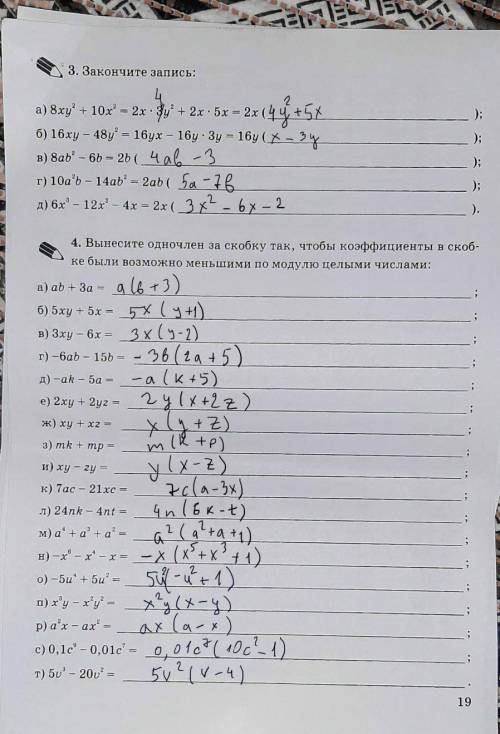 3. Закончите запись:
4
а) 8xy² + 10x² = 2x · 3y² + 2x · 5x = 2x ( 4y² + 5x );
б) 16xy – 48y² = 16yx – 16y · 3y = 16y ( x – 3y );
в) 8ab² – 6b = 2b ( 4ab – 3 );
г) 10a²b – 14ab² = 2ab ( 5a – 7b );
д) 6x³ – 12x² – 4x = 2x ( 3x² – 6x – 2 ).
4. Вынесите одночлен за скобку так, чтобы коэффициенты в скоб-
ке были возможно меньшими по модулю целыми числами:
а) ab + 3a = a(b + 3) ;
б) 5xy + 5x = 5x (y+1) ;
в) 3xy – 6x = 3x (y-2) ;
г) –6ab – 15b = - 3b (2a + 5) ;
д) –ak – 5a = -a (k + 5) ;
е) 2xy + 2yz = 2y (x + 2z) ;
ж) xy + xz = x (y + z) ;
з) mk + mp = m (k + p) ;
и) xy – zy = y (x – z) ;
к) 7ac – 21xc = 7c (a – 3x) ;
л) 24nk – 4nt = 4n (6k – t) ;
м) a⁴ + a³ + a² = a² (a² + a + 1) ;
н) –x⁶ – x⁴ – x = -x (x⁵ + x³ + 1) ;
о) –5u⁴ + 5u² = 5u² (-u² + 1) ;
п) x³y – x²y² = x²y (x – y) ;
р) a²x – ax² = ax (a – x) ;
с) 0,1c⁹ – 0,01c⁷ = 0,01c⁷ (10c² – 1) ;
т) 5v³ – 20v² = 5v² (v – 4) ;
19